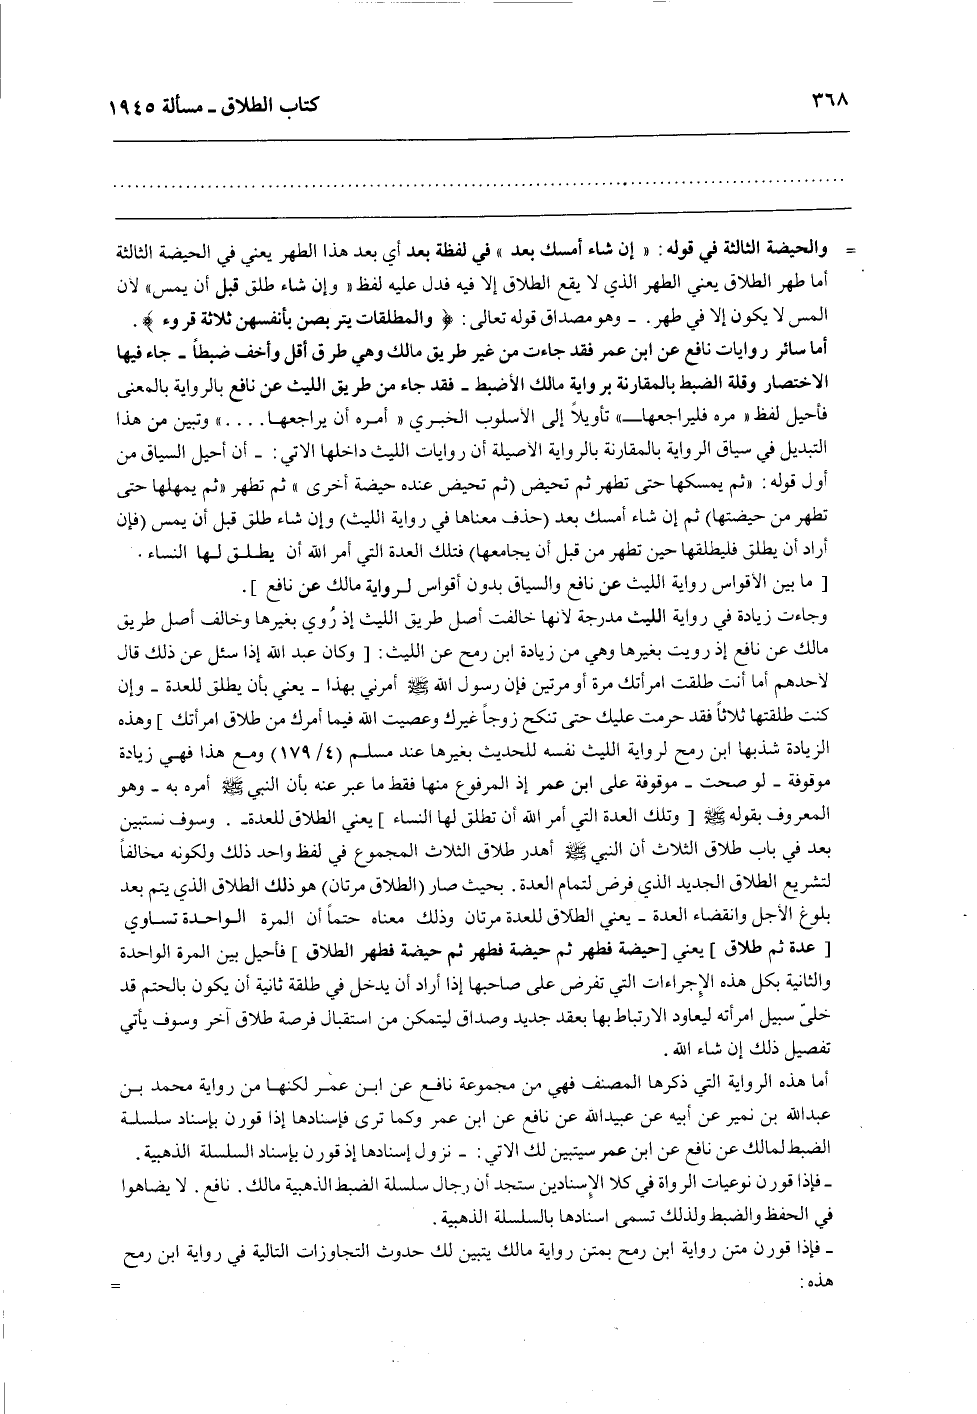 ٣٦٨
كتاب الطلاق ـ مسألة ١٩٤٥
= والحيضة الثالثة في قوله: « إن شاء أمسك بعد » في لفظة بعد أي بعد هذا الطهر يعني في الحيضة الثالثة
أما طهر الطلاق يعني الطهر الذي لا يقع الطلاق إلا فيه فدل عليه لفظ « وإن شاء طلق قبل أن يمس» لأن
المس لا يكون إلا في طهر. ـ وهو مصداق قوله تعالى: ﴿ والمطلقات يتربصن بأنفسهن ثلاثة قروء ﴾.
أما سائر روايات نافع عن ابن عمر فقد جاءت من غير طريق مالك وهي طرق أقل وأخف ضبطاً ـ جاء فيها
الاختصار وقلة الضبط بالمقارنة برواية مالك الأضبط ـ فقد جاء من طريق الليث عن نافع بالرواية بالمعنى
فأحيل لفظ « مره فليراجعها ــ» تأويلاً إلى الأسلوب الخبري « أمره أن يراجعها ....» وتبين من هذا
التبديل في سياق الرواية بالمقارنة بالرواية الأصيلة أن روايات الليث داخلها الآتي: ـ أن أحيل السياق من
أول قوله: «ثم يمسكها حتى تطهر ثم تحيض (ثم تحيض عنده حيضة أخرى » ثم تطهر «ثم يمهلها حتى
تطهر من حيضتها) ثم إن شاء أمسك بعد (حذف معناها في رواية الليث) وإن شاء طلق قبل أن يمس (فإن
أراد أن يطلق فليطلقها حين تطهر من قبل أن يجامعها) فتلك العدة التي أمر الله أن يطلـق لـها النساء .
[ ما بين الأقواس رواية الليث عن نافع والسياق بدون أقواس لـرواية مالك عن نافع ].
وجاءت زيادة في رواية الليث مدرجة لأنها خالفت أصل طريق الليث إذ رُوي بغيرها وخالف أصل طريق
مالك عن نافع إذ رويت بغيرها وهي من زيادة ابن رمح عن الليث: [ وكان عبد الله إذا سئل عن ذلك قال
لأحدهم أما أنت طلقت امرأتك مرة أو مرتين فإن رسول الله ﷺ أمرني بهذا ـ يعني بأن يطلق للعدة ـ وإن
كنت طلقتها ثلاثاً فقد حرمت عليك حتى تنكح زوجاً غيرك وعصيت الله فيما أمرك من طلاق امرأتك ] وهذه
الزيادة شذبها ابن رمح لرواية الليث نفسه للحديث بغيرها عند مسلم (٤/ ١٧٩) ومـع هذا فهـي زيادة
موقوفة ـ لو صحت ـ موقوفة على ابن عمر إذ المرفوع منها فقط ما عبر عنه بأن النبي ﷺ أمره به ـ وهو
المعروف بقوله ﷺ [ وتلك العدة التي أمر الله أن تطلق لها النساء ] يعني الطلاق للعدة ـ . وسوف نستبين
بعد في باب طلاق الثلاث أن النبي ﷺ أهدر طلاق الثلاث المجموع في لفظ واحد ذلك ولكونه مخالفاً
لتشريع الطلاق الجديد الذي فرض لتمام العدة. بحيث صار (الطلاق مرتان) هو ذلك الطلاق الذي يتم بعد
بلوغ الأجل وانقضاء العدة ـ يعني الطلاق للعدة مرتان وذلك معناه حتماً أن المرة الـواحـدة تسـاوي
[ عدة ثم طلاق ] يعني [حيضة فطهر ثم حيضة فطهر ثم حيضة فطهر الطلاق ] فأحيل بين المرة الواحدة
والثانية بكل هذه الإجراءات التي تفرض على صاحبها إذا أراد أن يدخل في طلقة ثانية أن يكون بالحتم قد
خلىّ سبيل امرأته ليعاود الارتباط بها بعقد جديد وصداق ليتمكن من استقبال فرصة طلاق آخر وسوف يأتي
تفصيل ذلك إن شاء الله.
أما هذه الرواية التي ذكرها المصنف فهي من مجموعة نافـع عن ابـن عمر لكنهـا من رواية محمد بـن
عبدالله بن نمير عن أبيه عن عبيدالله عن نافع عن ابن عمر وكما ترى فإسنادها إذا قورن بإسناد سلسلـة
الضبط لمالك عن نافع عن ابن عمر سيتبين لك الآتي: ـ نزول إسنادها إذ قورن بإسناد السلسلة الذهبية.
ـ فإذا قورن نوعيات الرواة في كلا الإسنادين ستجد أن رجال سلسلة الضبط الذهبية مالك. نافع. لا يضاهوا
في الحفظ والضبط ولذلك تسمى اسنادها بالسلسلة الذهبية.
ـ فإذا قورن متن رواية ابن رمح بمتن رواية مالك يتبين لك حدوث التجاوزات التالية في رواية ابن رمح
هذه: =